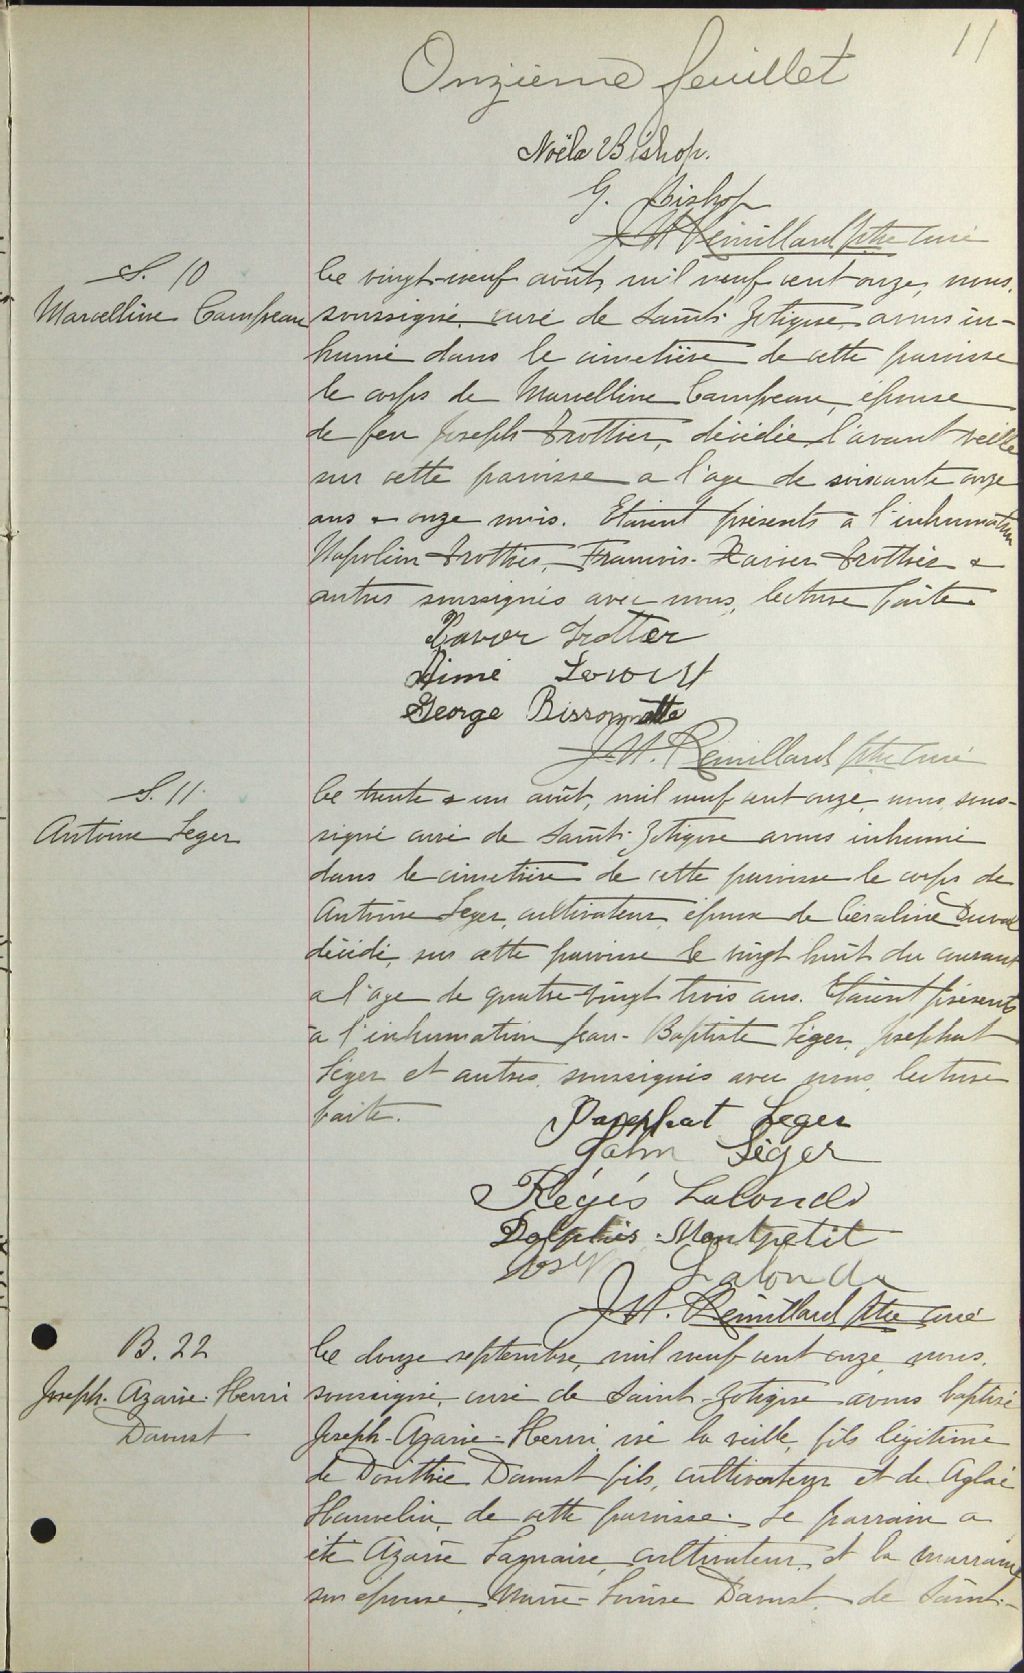 11
Onzième feuillet
Noëla Bishop.
G. Bishop
J.A. Rémillard ptre curé
S. 10
Marcelline Campeau
Le vingt-neuf août, mil neuf cent onze, nous,
soussigné, curé de Saint-Zotique avons in-
humé dans le cimetière de cette paroisse
le corps de Marcelline Campeau, épouse
de feu Joseph Trottier, décédée l'avant veille
sur cette paroisse a l'age de soixante onze
ans & onze mois. Etaient présents à l'inhumation
Napoléon Trottier, Francois-Xavier Trottier &
autres soussignés avec nous, lecture faite.
Xavier Trotter
Aimé
George Bissonnette
J.A. Rémillard ptre curé
S. 11.
Antoine Leger
Le trente & un août, mil neuf cent onze, nous, sous-
signé curé de Saint-Zotique avons inhumé
dans le cimetière de cette paroisse le corps de
Antoine Leger, cultivateur, époux de Céraline Duval
décédé, sur cette paroisse le vingt huit du courant
a l'age de quatre-vingt trois ans. Etaient présents
à l'inhumation Jean-Baptiste Léger, Josephat
Léger et autres, soussignés avec nous, lecture
faite.
Josephat Leger
John Léger
Régis Lalonde
Dolphis Montpetit
Lalonde
J.A. Rémillard ptre curé
B. 22
Joseph-Azarie-Henri
Daoust
Le douze septembre, mil neuf cent onze, nous,
soussigné, curé de Saint-Zotique avons baptisé
Joseph-Azarie-Henri, né la veille, fils légitime
de Dosithée Daoust fils, cultivateur et de Aglaé
Hauvelin, de cette paroisse. Le parrain a
été Azarie cultivateur, et la marraine
son épouse, Marie-Louise Daoust, de Saint-